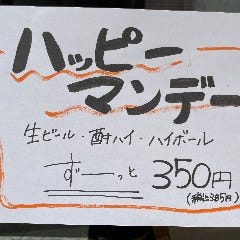 ハッピー
マンデー
生ビール・酎ハイ・ハイボール
ずーっと 350円
(税込385円)